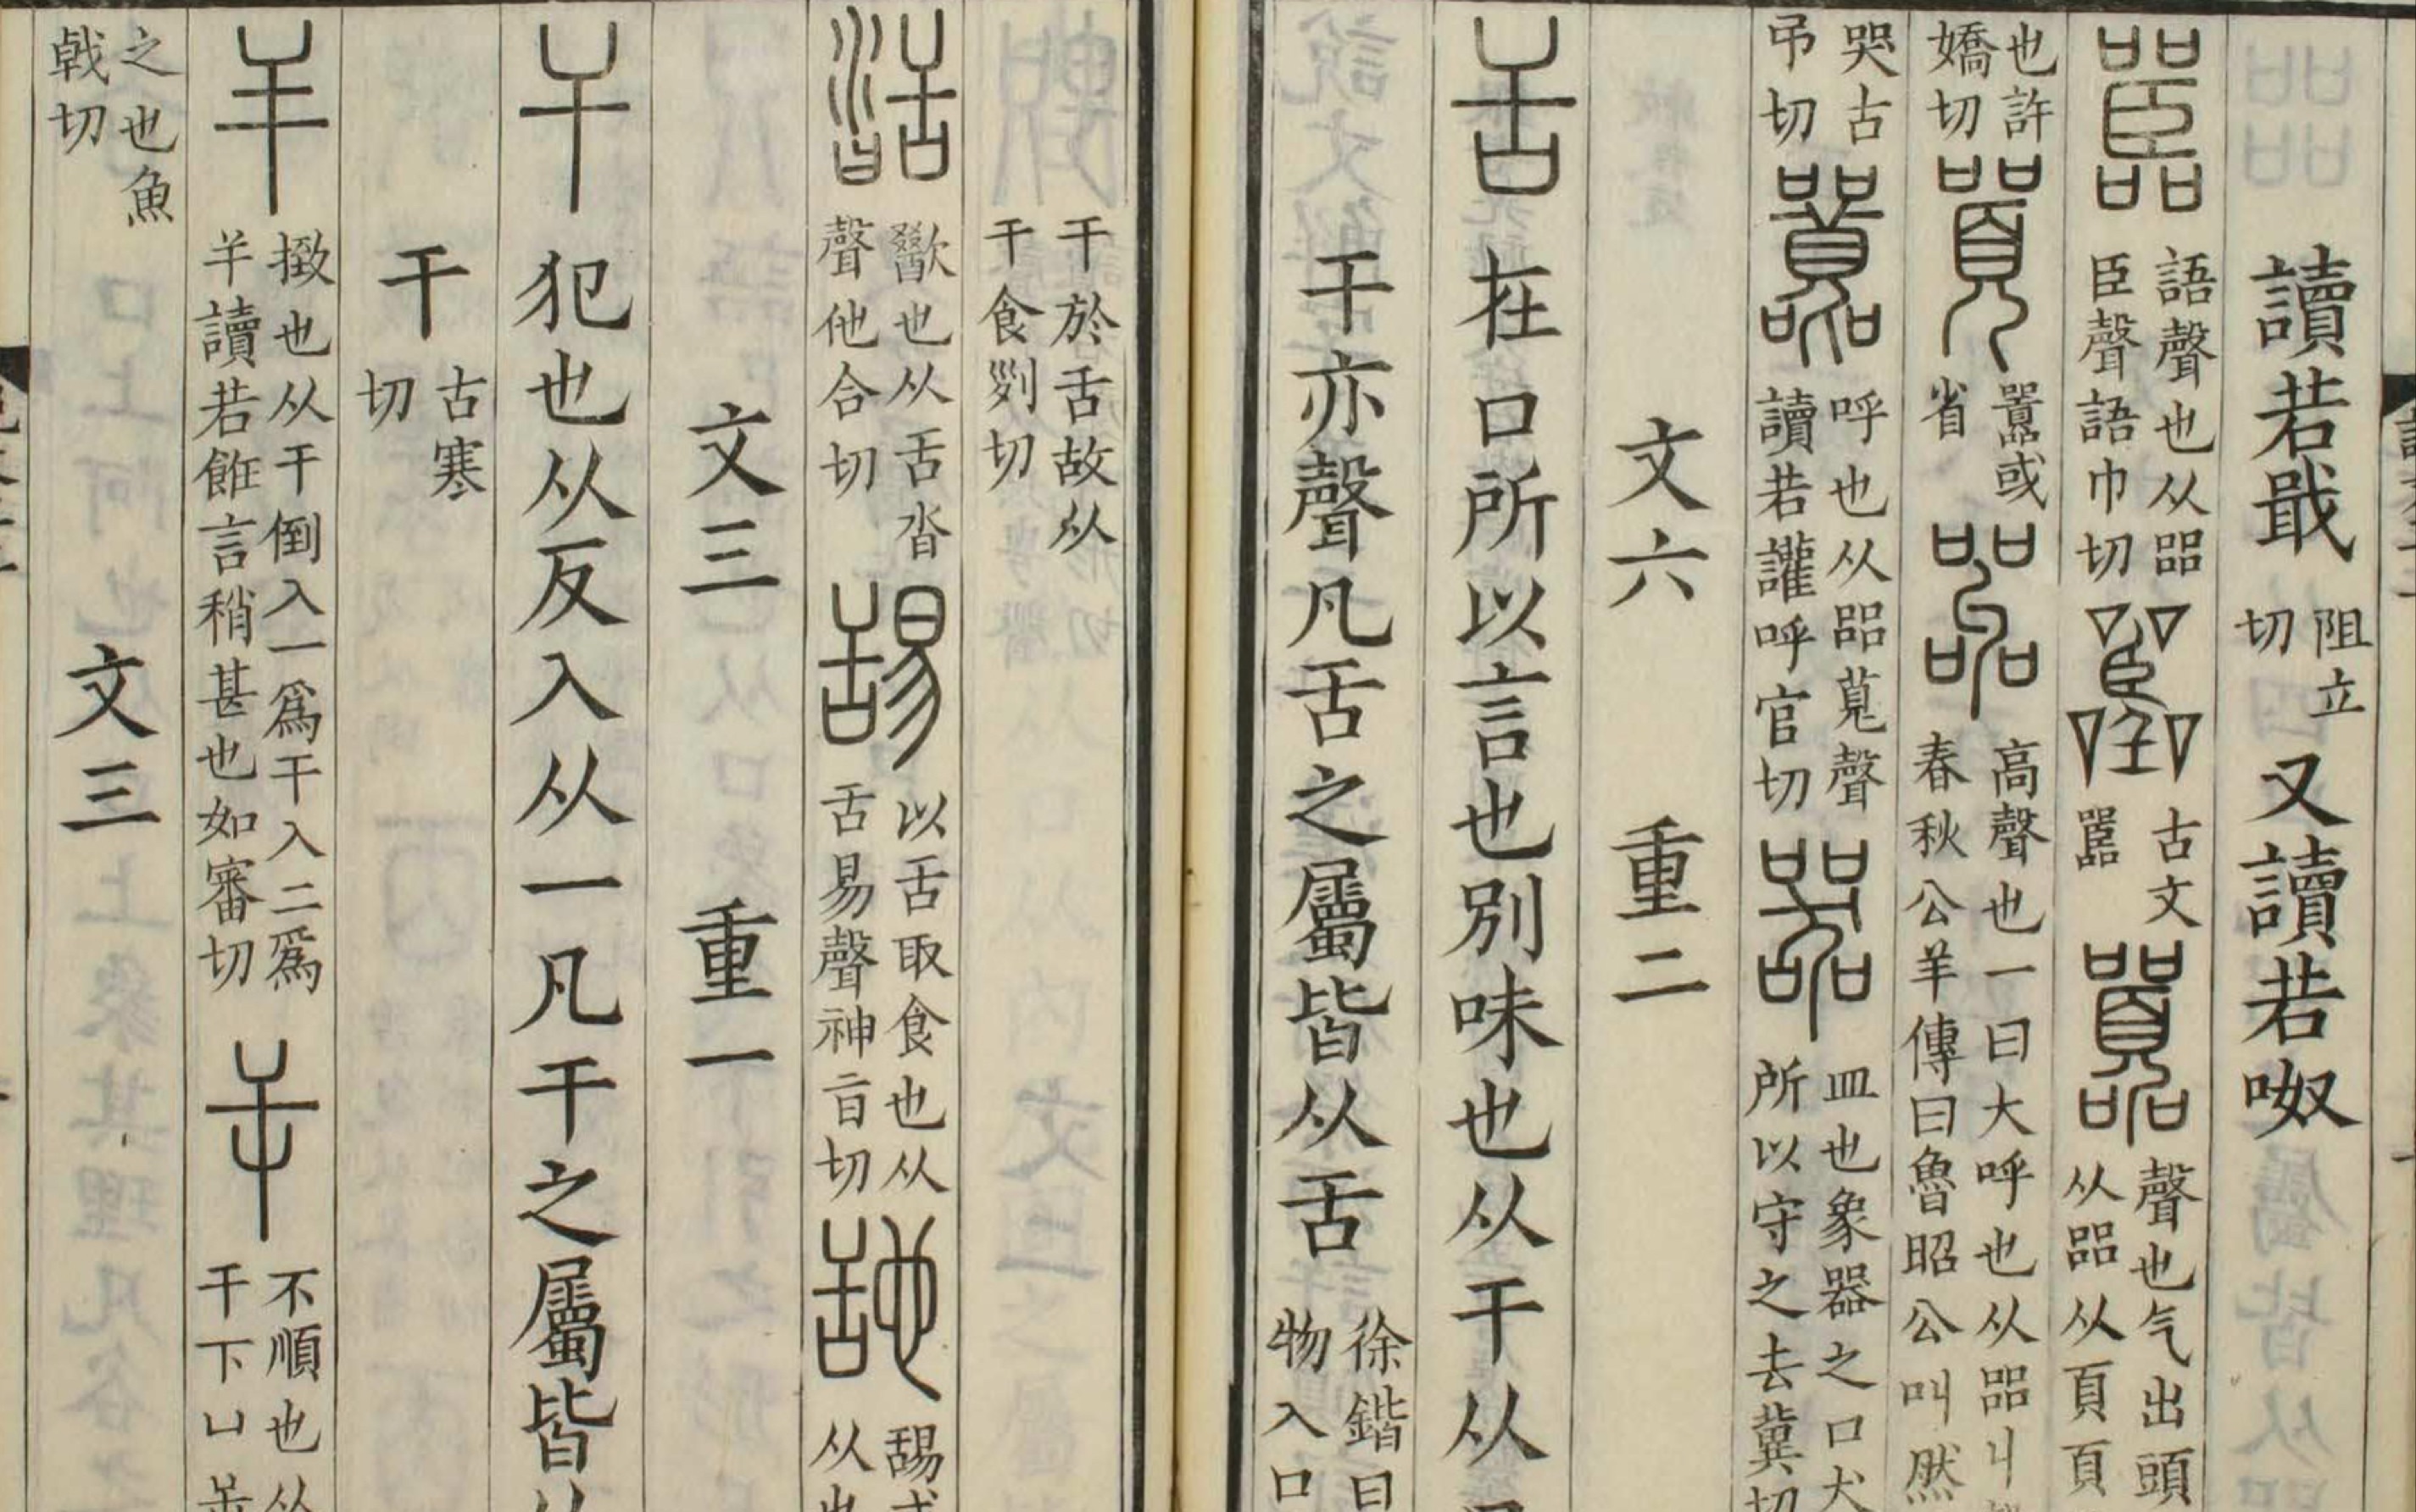 讀若戢阻立切又讀若呶
嚚語聲也从㗊臣聲語巾切𠾂古文嚚囂聲也气出頭上从㗊从頁頁
也許嬌切𡅽囂或省嘂高聲也一曰大呼也从㗊丩春秋公羊傳曰魯昭公叫然
哭古弔切嚾呼也从㗊萈聲讀若讙呼官切器皿也象器之口犬所以守之去冀切
文六 重二
舌在口所以言也別味也从干从
干亦聲凡舌之屬皆从舌徐鍇曰物入口
干於舌故从干食列切
𦧟歠也从舌沓聲他合切舓以舌取食也从舌易聲神旨切𦧇舓或从也
文三 重一
干犯也从反入从一凡干之屬皆从
干古寒切
𢆉㨖也从干倒入一爲干入二爲𢆉讀若飪言稍甚也如審切屰不順也从干下凵屰
之也魚戟切 文三